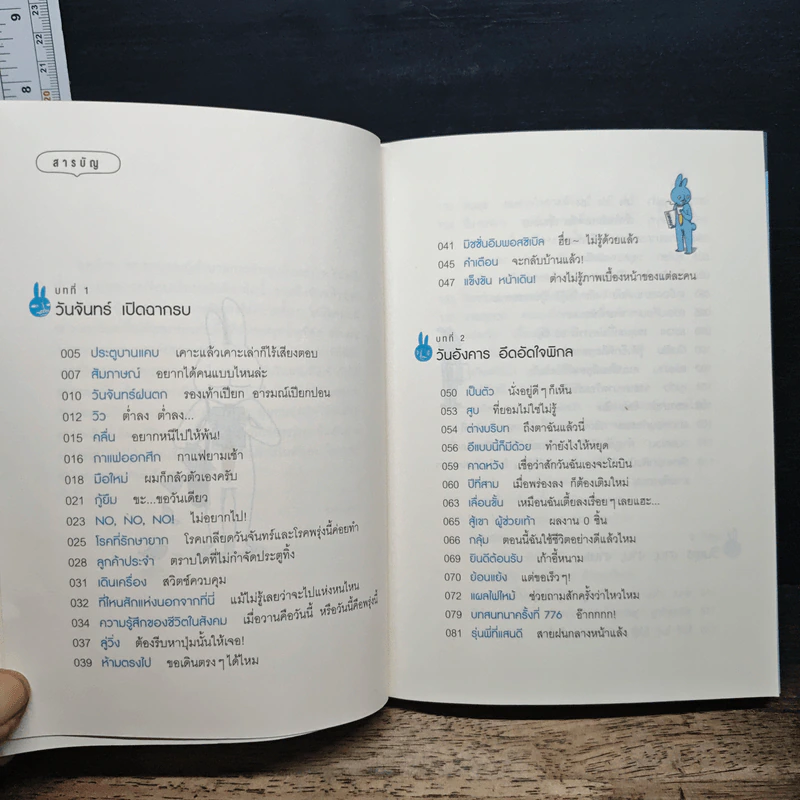 9
8
23
22
21
20
สารบัญ
บทที่ 1
วันจันทร์ เปิดฉากรบ
005 ประตูบานแคบ เคาะแล้วเคาะเล่าก็ไร้เสียงตอบ
007 สัมภาษณ์ อยากได้คนแบบไหนล่ะ
010 วันจันทร์ฝนตก รองเท้าเปียก อารมณ์เปียกปอน
012 วิว ต่ำลง ต่ำลง...
015 คลื่น อยากหนีไปให้พ้น!
016 กาแฟออกศึก กาแฟยามเช้า
018 มือใหม่ ผมก็กลัวตัวเองครับ
021 กู้ยืม ขะ...ขอวันเดียว
023 NO, NO, NO! ไม่อยากไป!
025 โรคที่รักษายาก โรคเกลียดวันจันทร์และโรคพรุ่งนี้ค่อยทำ
028 ลูกค้าประจำ ตราบใดที่ไม่กำจัดประตูทิ้ง
031 เดินเครื่อง สวิตช์ควบคุม
032 ที่ไหนสักแห่งนอกจากที่นี่ แม้ไม่รู้เลยว่าจะไปแห่งหนไหน
034 ความรู้สึกของชีวิตในสังคม เมื่อวานคือวันนี้ หรือวันนี้คือพรุ่งนี้
037 ลู่วิ่ง ต้องรีบหาปุ่มนั้นให้เจอ!
039 ห้ามตรงไป ขอเดินตรงๆ ได้ไหม
041 มิชชั่นอิมพอสซิเบิล ฮื่ย~ ไม่รู้ด้วยแล้ว
045 คำเตือน จะกลับบ้านแล้ว!
047 แข็งขัน หน้าเดิน! ต่างไม่รู้ภาพเบื้องหน้าของแต่ละคน
บทที่ 2
วันอังคาร อึดอัดใจพิกล
050 เป็นตัว นั่งอยู่ดีๆ ก็เห็น
053 สูบ ที่ยอมไม่ใช่ไม่รู้
054 ต่างบริบท ถึงตาฉันแล้วนี่
056 อีแบบนี้ก็มีด้วย ทำยังไงให้หยุด
059 คาดหวัง เชื่อว่าสักวันฉันเองจะโผบิน
060 ปีที่สาม เมื่อพร่องลง ก็ต้องเติมใหม่
063 เลื่อนขั้น เหมือนฉันเตี้ยลงเรื่อยๆ เลยแฮะ...
065 สู้เขา ผู้ช่วยเท้า ผลงาน 0 ชิ้น
066 กลุ้ม ตอนนี้ฉันใช้ชีวิตอย่างดีแล้วไหม
069 ยินดีต้อนรับ เก้าอี้หนาม
070 ย้อนแย้ง แต่ขอเร็วๆ!
072 แผลไฟไหม้ ช่วยถามสักครั้งว่าไหวไหม
079 บทสนทนาครั้งที่ 776 อ๊ากกกก!
081 รุ่นพี่ที่แสนดี สายฝนกลางหน้าแล้ง